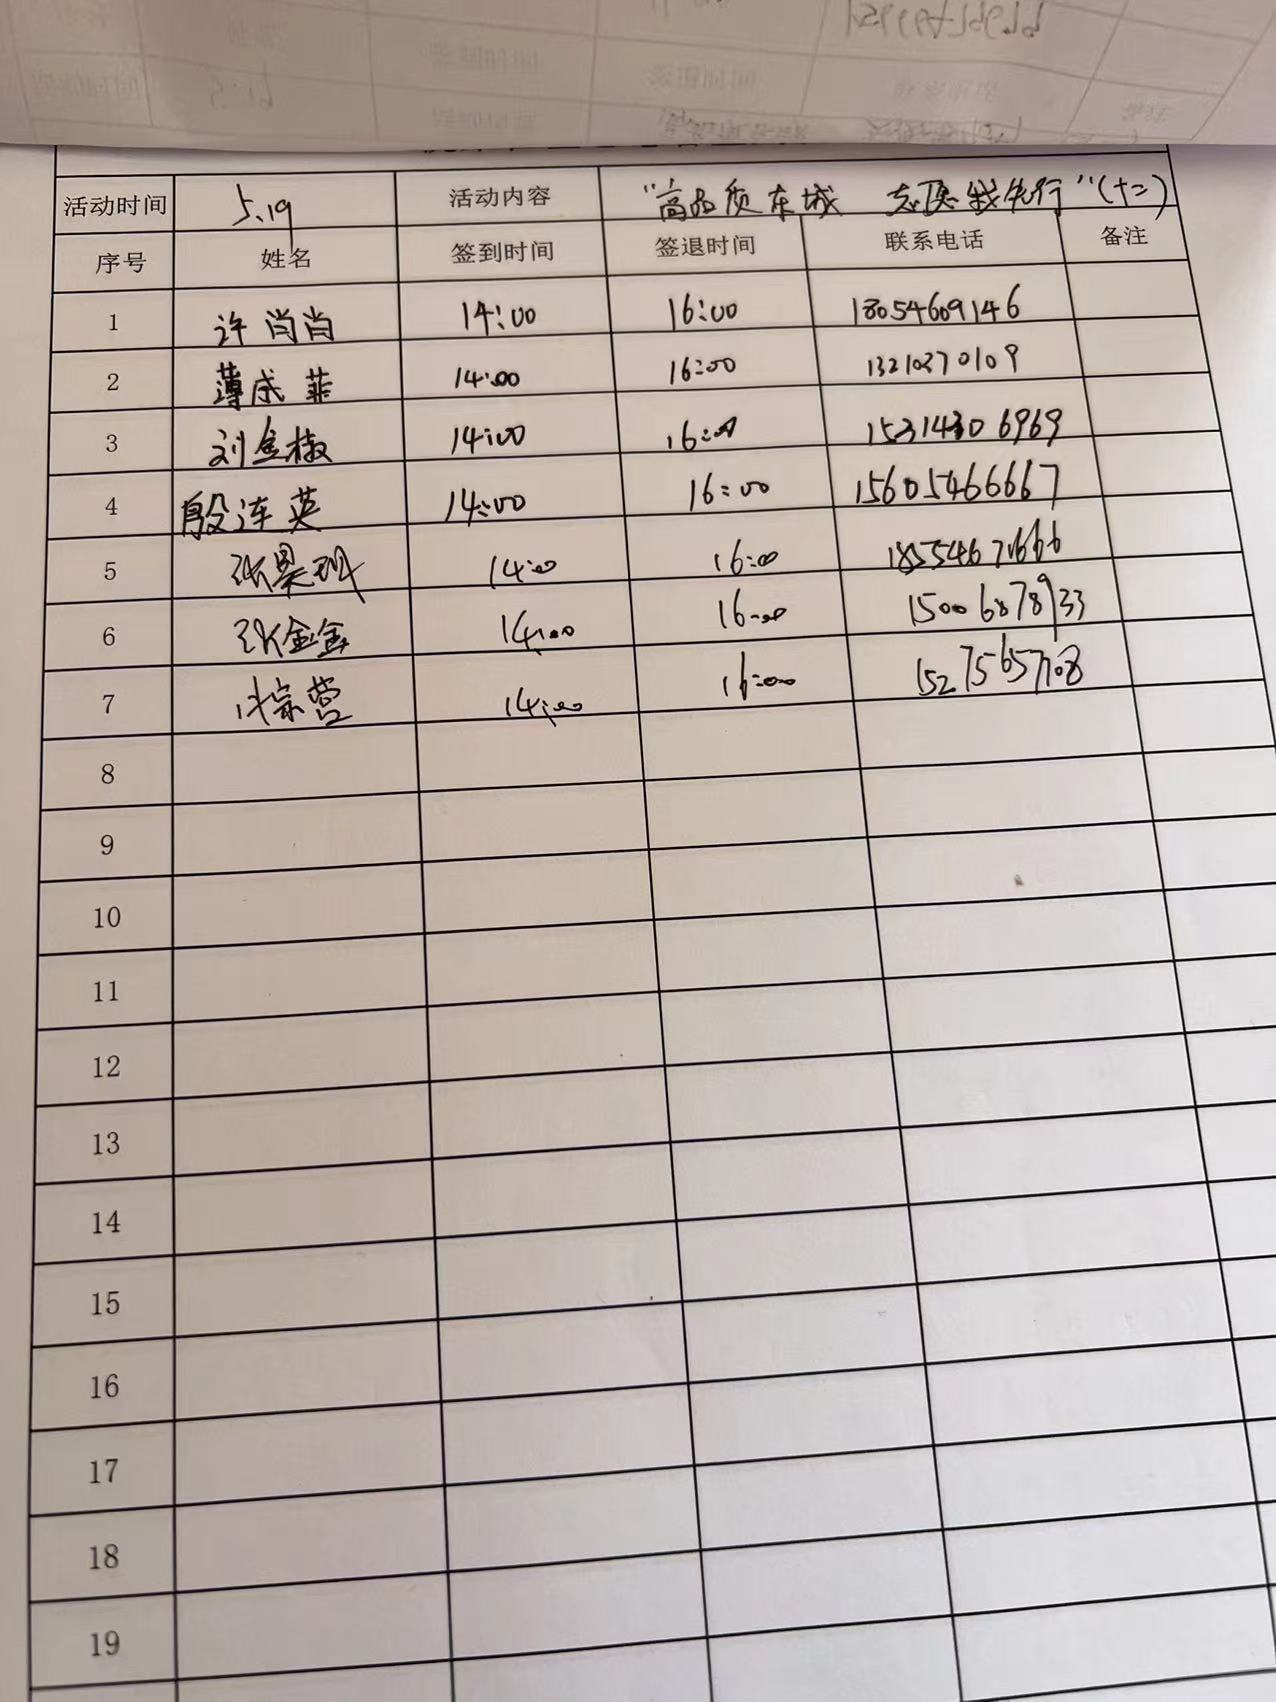 活动时间 5.19 活动内容 “高品质东城 志愿我先行”(十二)
序号 姓名 签到时间 签退时间 联系电话 备注
1 许肖肖 14:00 16:00 18054609146
2 薄成菲 14:00 16:00 13210370109
3 刘金椒 14:00 16:00 15314306969
4 殷连英 14:00 16:00 15605466667
5 张昊 14:00 16:00 18554671666
6 张金金 14:00 16:00 15006878933
7 宗营 14:00 16:00 15275657108
8
9
10
11
12
13
14
15
16
17
18
19